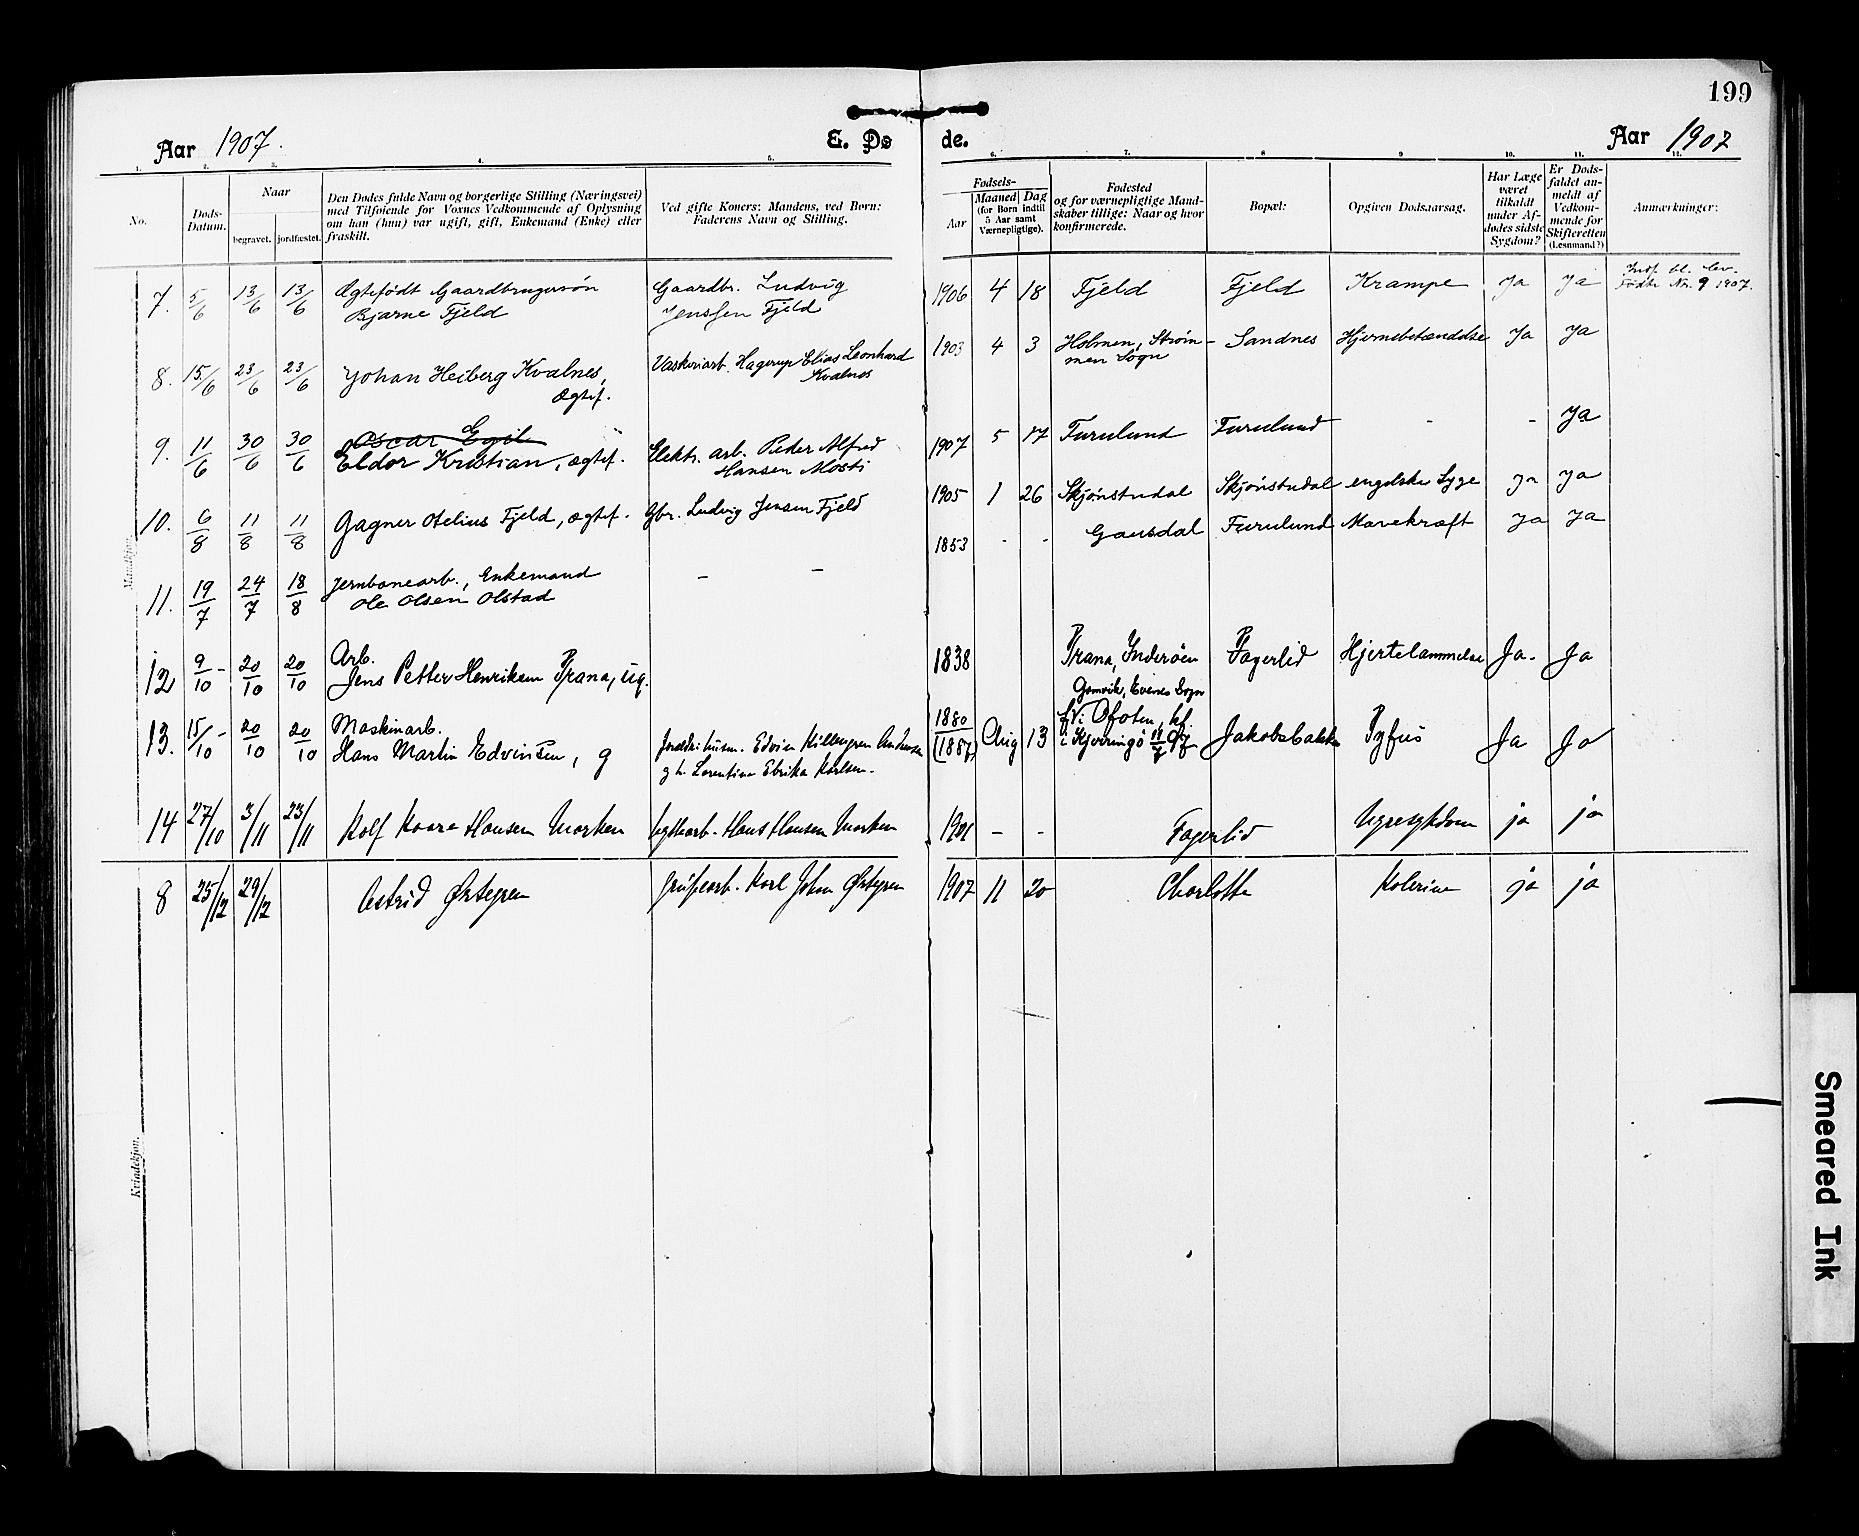 199
Aar 1907.
E. Døde.
Aar 1907
1. 2. 3. 4. 5. 6. 7. 8 9 10. 11. 12.
No.
Døds-Datum.
Naar
begravet. jordfæstet.
Den Dødes fulde Navn og borgerlige Stilling (Næringsvei)
med Tilføiende for Voxnes Vedkommende af Oplysning
om han (hun) var ugift, gift, Enkemand (Enke) eller
fraskilt.
Ved gifte Koner: Mandens, ved Børn:
Faderens Navn og Stilling.
Fødsels-
Aar
Maaned Dag
(for Børn indtil
5 Aar samt
Værnepligtige).
Fødested
og for værnepligtige Mand-
skaber tillige: Naar og hvor
konfirmerede.
Bopæl:
Opgiven Dødsaarsag.
Har Læge
været
tilkaldt
under Af-
dødes sidste
Sygdom?
Er Døds-
faldet an-
meldt af
Vedkom-
mende for
Skifteretten
(Lensmand?)
Anmærkninger:
Mandkjøn.
7. 5/6 13/6 13/6 Ægtefødt Gaardbrugersøn Gaardbr. Ludvig 1906 4 18 Fjeld Fjeld Krampe Ja Ja
Bjarne Fjeld Jenssen Fjeld
Indf. bl. lev.
Fødte No. 9 1907.
8. 15/6 23/6 23/6 Johan Heiberg Kvalnes, Vaskeriarb. Hagerup Elias Leonhard 1903 4 3 Holmen, Strøm- Sandnes Hjernebetændelse Ja Ja
Ægtef. Kvalnes men Sogn
9. 11/6 30/6 30/6 Oscar Egil
Eldor Kristian, ægtef. Elektr. arb. Peder Alfred 1907 5 17 Furulund Furulund - - Ja
Hansen Mosti
10. 6/8 11/8 11/8 Gagner Otelius Fjeld, ægtef. Gbr. Ludvig Jensen Fjeld 1905 1 26 Skjønstudal Skjønstudal engelske Syge Ja Ja
11. 19/7 24/7 18/8 Jernbanearb., Enkemand - - 1853 - - Gausdal Furulund Mavekræft Ja Ja
Ole Olsen Olstad
12 9/10 - 20/10 20/10 Arb. 1838 Trana, Inderøen Fagerlid Hjertelammelse Ja. Ja
Jens Petter Henriksen Trana, ug.
13. 15/10 - 20/10 20/10 Maskinarb. 1880 (1887) Aug 13 Evenes Sogn
Hans Martin Edvinsen, g Edvin
g h. Lorentine Karlsen.
i Ofoten, kf.
i Kjerringø Jakobsbakken Tyfus Ja Ja
14 27/10 3/11 23/11 Rolf Kaare Hansen Marken Hans Hansen Marken 1901 - - Fagerlid Nyresykdom ja ja
8 25/12 29/12 Astrid Østegren Grubearb. Karl John Østegren 1907 11 20 Charlotta Kolerine ja ja
Kvindekjøn.
Smeared Ink